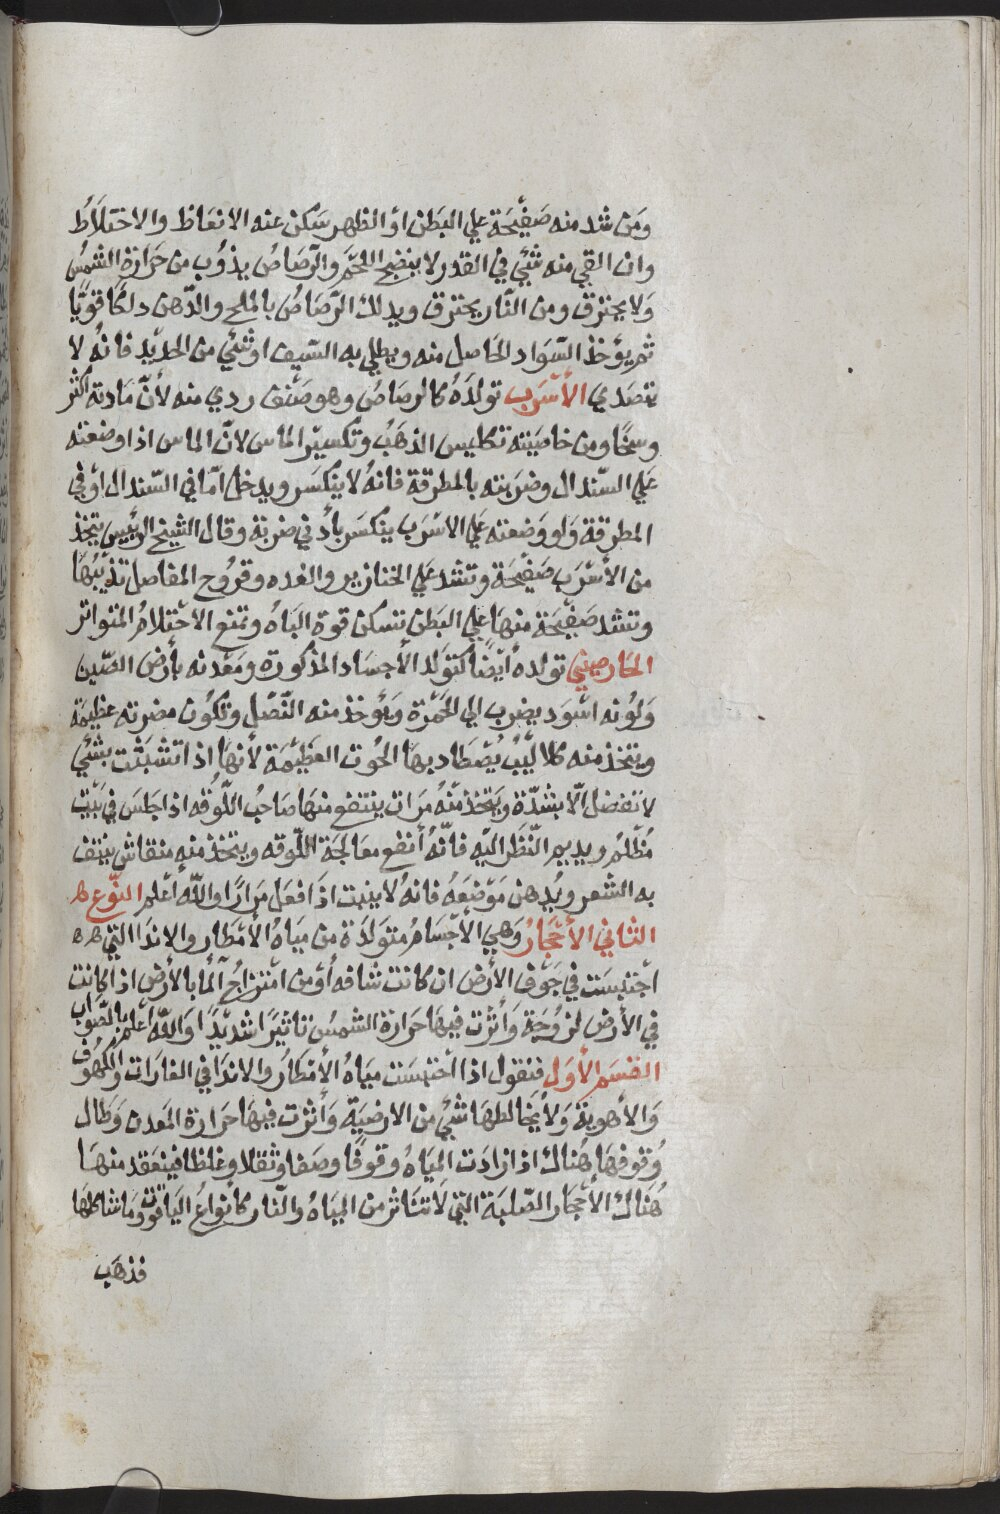 ومَن شد منه صَفيْحَة علي البَطن اوْ الظهر سَكن عنه الانعَاظ والاختلَاَط
وان القي منه شيْي في القدر لا ينضج اللحَم والرّصَاصُ يذوُب من حَرَارة الشمسُ
وَلا يحترق ومن النّار يحترق ويدلك الرّصَاصُ بالملح والدّهن دلكا قويًّا
ثم يؤخذ السّوَاد الحَاصل منه ويطلي به السّيف او شيْي من الحديْد فانهُ لا
يتصَدي الأسْرَب تولدَهُ كالرصَاصُ وهو صَنْف ردي منه لأنّ مَادته أكثر
وسخًا ومن خاصيَته تكليس الذهَبُ وتكسيْر الماس لانّ الماس اذا وضعته
عَلي السّندال وضرَبته بالمطرقة فانهُ لا ينْكسَر ويدخل امّا في السّندال اوْ في
المطرقة وَلو وَضعته عَلي الاسْرَب ينكسَر بأدني ضربة وقال الشيخ الرئيس يتخذ
من الأسْرَب صَفيْحَة وتشد عَلي الخنازير والغده وقروُح المفاصل تذيْبُهَا
وتشد صَفيْحَة منهَا علي البَطن تسكن قوة البَاهُ وتمنع الأحْتلامُ المتواتر
الخَارصيني تولدهُ أيْضًا كتوَلد الأجسَاد المذكورة ومَعْدنه بأرض الصّين
وَلوُنه اسْوَد يضرب الي الحَمْرة وَيؤخذ منه النّصْل وتكُون مضرته عظيمَة
ويتخذ منه كلاليْبُ يُصْطَاد بهَا الحُوت العظيْمَة لأنهَا اذا تشبَثت بشيْي
لا تنفصَل الّا بشدّة وَيتخذ منْهُ مرَات ينتفع منهَا صَاحبُ اللّوُقه اذا جلسَ في بَيْت
مُظلمُ ويديم النّظَر اليْه فانّهُ أنفع معَالجة اللّوقه ويتخذ منه منقاش ينتف
به الشعر ويُدهن مَوْضعَهُ فانهُ لا ينبت اذَا فعَل مَرَارًا واللّهُ أعْلم النّوْع
الثاني الأحْجَارُ وَهي الأجْسَامُ متوَلدَة من ميَاهُ الأمْطار والاندَا التي
احْتبسَت في جَوف الأرْض ان كانت شافه أوْ من امْتزَاجُ المَا بالأرْض اذا كانت
في الأرض لزوُجَة وَأثرت فيهَا حرَارة الشمسُ تاثيْرًا شديْدًا وَاللّه أعْلم بالصّوَاب
القسم الأوَل فنقول اذا احْتبسَت ميَاهُ الأمْطارُ والاندَا في الغارَات والكهُوف
وَالأهوية وَلا يخَالطهَا شيْي من الارضيَة وَأثرت فيهَا حَرَارة المَعدن وَطَال
وُقوفهَا هُنَاك ازدَادَت الميَاهُ وقوفًا وصَفا وثقلا وغلظا فينعَقد منهَا
هُنَاك الأحْجَار الصّلبَة التي لا تتَاثر من الميَاهُ والنّار كأنواعُ اليَاقوُت ومَا شاكلهَا
فذهَب